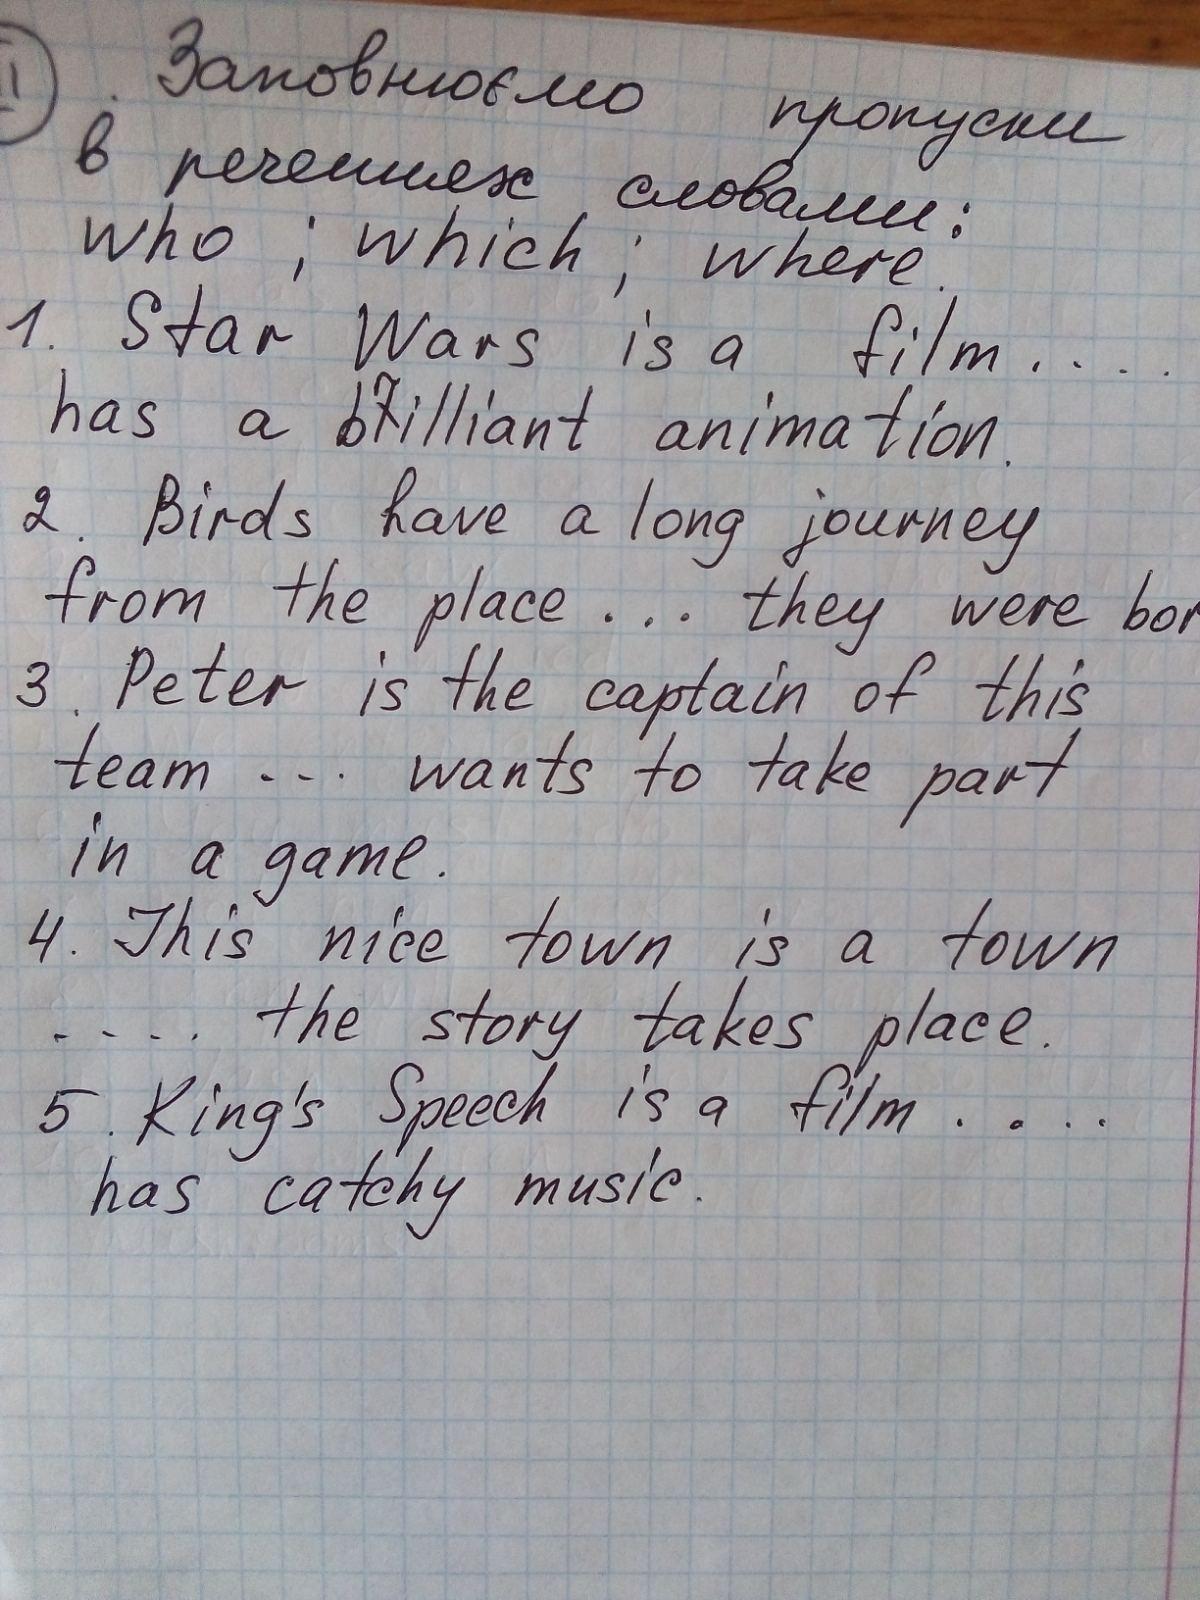 II. Заповнюємо пропуски
в реченнях словами:
who ; which ; where.
1. Star Wars is a film....
has a brilliant animation.
2. Birds have a long journey
from the place ... they were bor
3. Peter is the captain of this
team ... wants to take part
in a game.
4. This nice town is a town
.... the story takes place.
5. King's Speech is a film ....
has catchy music.